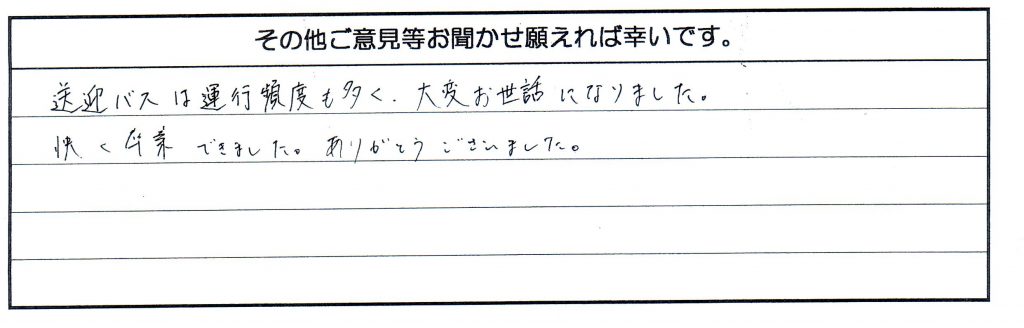 その他ご意見等お聞かせ願えれば幸いです。
送迎バスは運行頻度も多く、大変お世話になりました。
快く卒業できました。ありがとうございました。